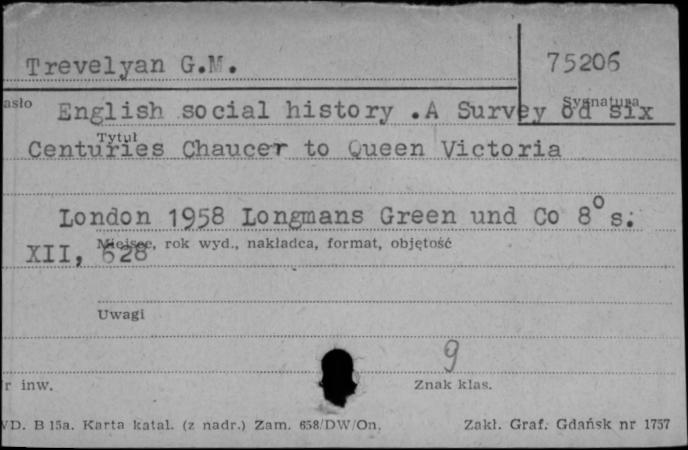 Trevelyan G.M.
75206
asło
Sygnatura
English social history .A Survey od six
Tytuł
Centuries Chaucer to Queen Victoria
London 1958 Longmans Green und Co 8° s.
Miejsce, rok wyd., nakładca, format, objętość
XII, 628
Uwagi
9
r inw.
Znak klas.
VD. B 15a. Karta katal. (z nadr.) Zam. 658/DW/On.
Zakł. Graf. Gdańsk nr 1757